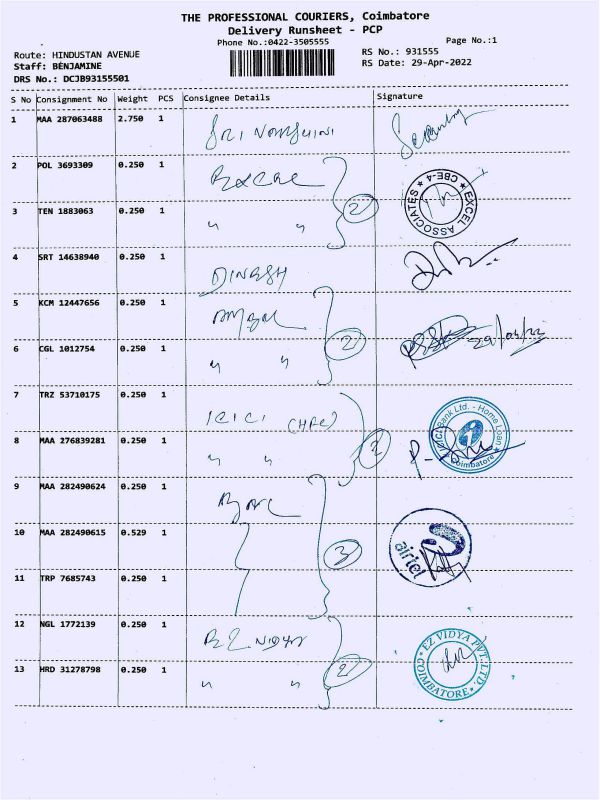 THE PROFESSIONAL COURIERS, Coimbatore
Delivery Runsheet - PCP
Phone No.:0422-3505555
Page No.:1
Route: HINDUSTAN AVENUE
RS No.: 931555
Staff: BENJAMINE
RS Date: 29-Apr-2022
DRS No.: DCJB93155501
S No Consignment No Weight PCS Consignee Details Signature
1 MAA 287063488 2.750 1 SRI
2 POL 3693309 0.250 1
EXCEL ASSOCIATES * CBE-4 *
3 TEN 1883063 0.250 1 " " 2
4 SRT 14638940 0.250 1 DINESH
5 KCM 12447656 0.250 1
29/04/22
6 CGL 1012754 0.250 1 " " 2
7 TRZ 53710175 0.250 1 ICICI (HFC)
ICICI Bank Ltd. - Home Loan * Coimbatore *
8 MAA 276839281 0.250 1 " " 2
9 MAA 282490624 0.250 1
10 MAA 282490615 0.529 1 3
airtel
11 TRP 7685743 0.250 1
12 NGL 1772139 0.250 1 EZ VIDYA
EZ VIDYA PVT.LTD. * COIMBATORE *
13 HRD 31278798 0.250 1 " " 2